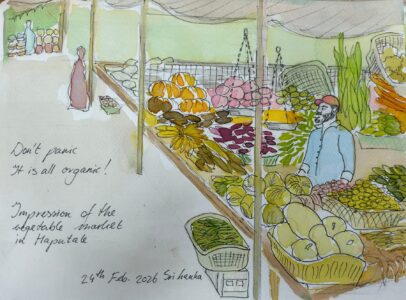 Don't panic
It is all organic!
Impression of the
vegetable market
in Haputale
24th Feb. 2026 Sri Lanka